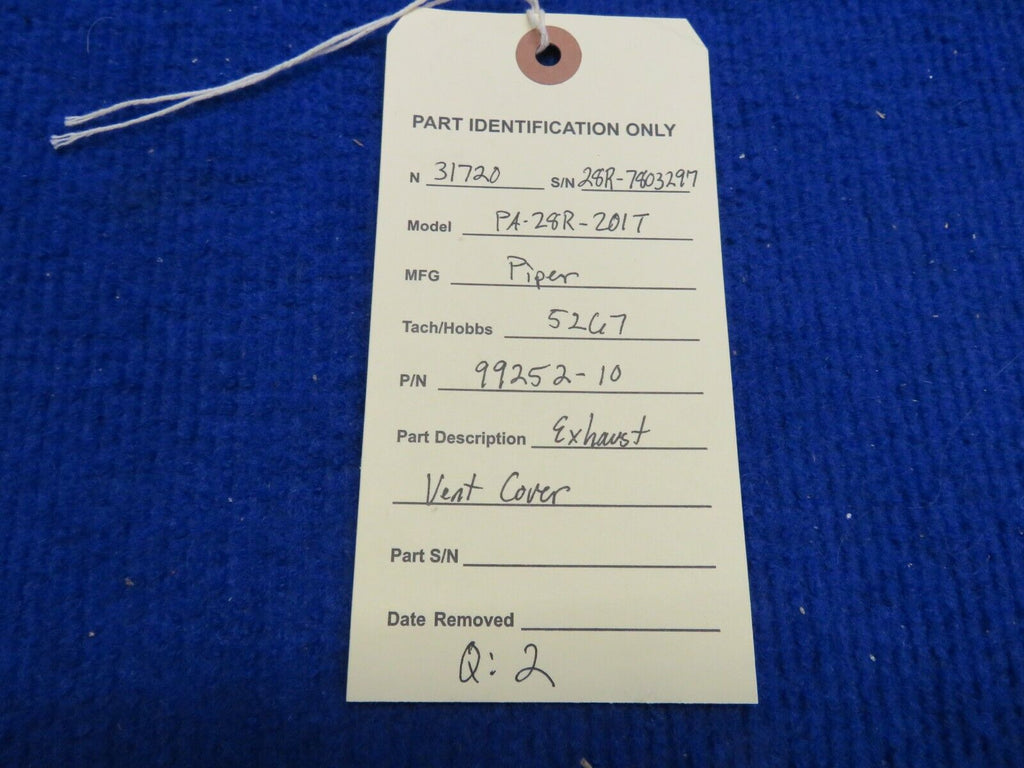 PART IDENTIFICATION ONLY
N 31720 S/N 28R-7803297
Model PA-28R-201T
MFG Piper
Tach/Hobbs 5267
P/N 99252-10
Part Description Exhaust
Vent Cover
Part S/N
Date Removed
Q: 2